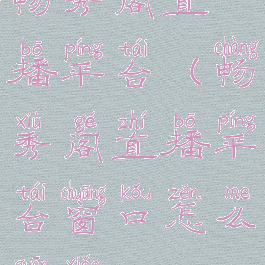 畅秀阁直
bō píng tái chàng
播平台（畅
xiù gé zhí bō píng
秀阁直播平
tái chuāng kǒu zěn me
台窗口怎么